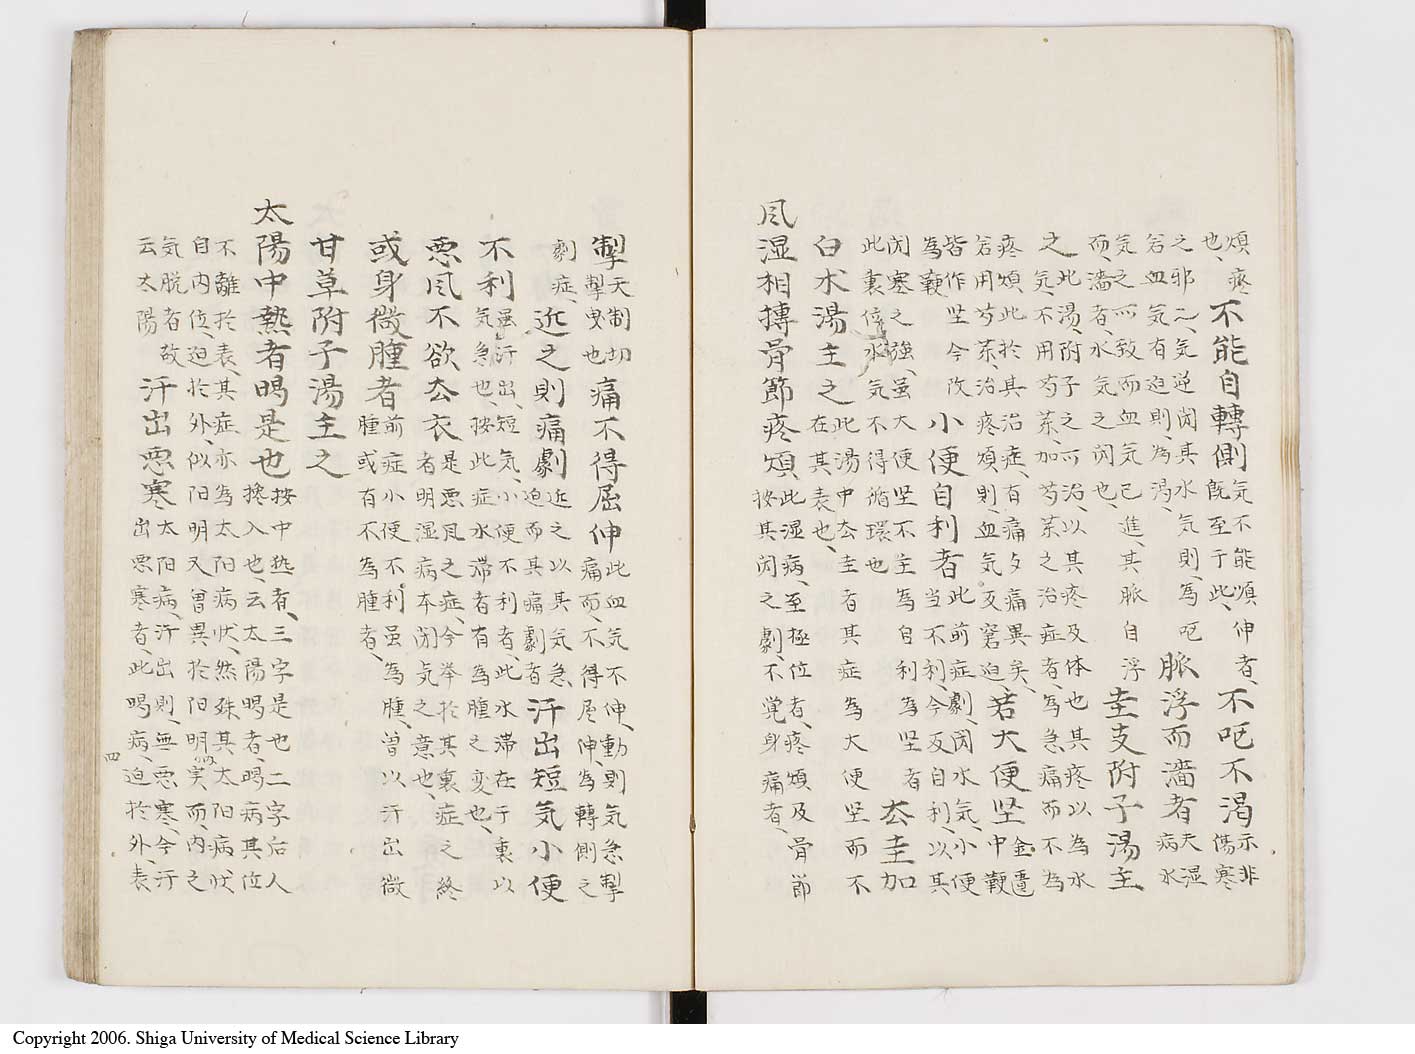 煩疼
也、
不能自轉側
気不能順伸者、
既至于此、
不呕不渇
示非
傷寒
之邪二、気逆闭其水気則、為呕
若血気有迫則、為渇、
脈浮而濇者
夫湿
病水
気之所致而血気已進、其脈自浮
而濇者、水気之闭也、
圭支附子湯主
之
此湯、附子之可治、以其疼及体也其疼以為水
気、不用芍薬、加芍薬之治症者、為急痛而不為
疼煩此於其治症、有痛夕痛異矣、
若用芍薬、治疼煩則、血気反窘迫、
若大便坚
金匱
中鞕
皆作坚今改
為鞕、
小便自利者
此前症劇、闭水気、小便
当不利、今反自利、以其
闭塞之強、虽大便坚不主為自利為坚者
此裏位水気不得循環也
去圭加
白术湯主之
此湯中去圭者其症為大便坚而不
在其表也、
風湿相摶骨節疼煩
此湿病、至極位者、疼煩及骨節
按其闭之劇、不覚身痛者、
掣
天制切
掣曳也
痛不得屈伸
此血気不伸、動則気急掣
痛而、不得屈伸、為轉側之
劇症、
近之則痛劇
近之以其気急、
迫而其痛劇者
汗出短気小便
不利
虽汗出、短気、小便不利者、此水滞在于裏以
気急也、按此症水滞者有為腫之変也、
悪風不欲去衣
是悪風之症、今挙於其裏症之終
者明湿病本闭気之意也、
或身微腫者
前症小便不利虽為腫、曽以汗出微
腫或有不為腫者、
甘草附子湯主之
太陽中熱者暍是也
按中热者、三字是也二字后人
搀入也、云太陽暍者、暍病其位
不離於表、其症亦為太阳病状、然殊其太阳病状、
自内位、迫於外、似阳明又曽異於阳明実而、内之
気脱者故
云太陽
汗出悪寒
太阳病、汗出則、無悪寒、今汗
出悪寒者、此暍病、迫於外、表
四
Copyright 2006. Shiga University of Medical Science Library